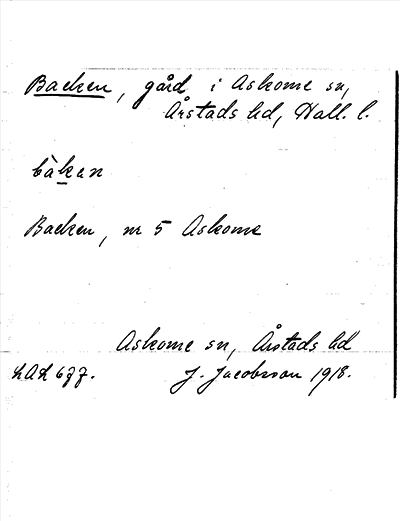 Backen, gård i Askome sn,
Årstads hd, Hall. l.
bàkan
Backen, nr 5 Askome
Askome sn, Årstads hd
LAL 677. J. Jacobsson 1918.